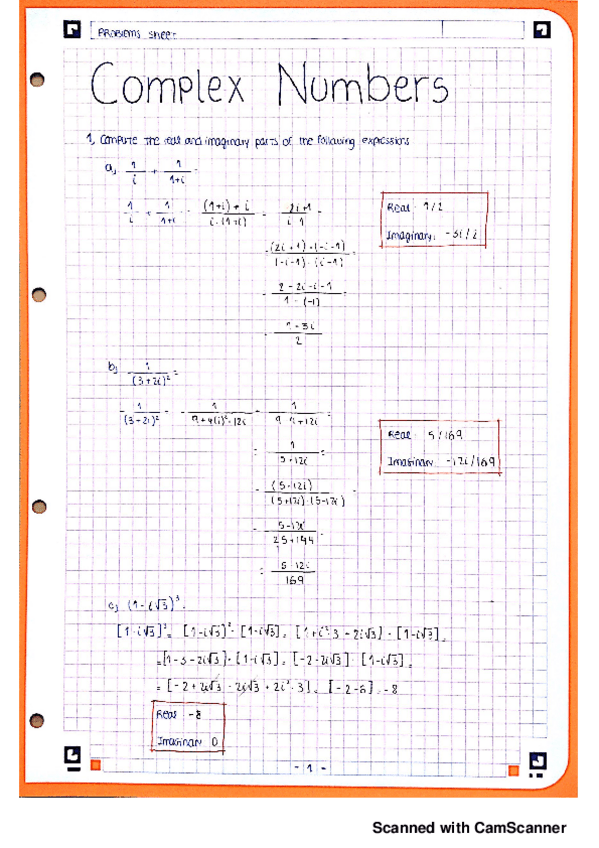 PROBLEMS sheet
Complex Numbers
1, Compute the real and imaginary parts of the following expressions
a, 1/i + 1/1+i =
1/i + 1/1+i = (1+i)+i / i·(1+i) = 2i+1 / i-1 =
= (2i+1)·(-i-1) / (-i-1)·(i-1) =
= 2-2i-i-1 / 1-(-1) =
= 1-3i / 2
Real: 1/2
Imaginary: -3i/2
b, 1 / (3+2i)² =
1 / (3+2i)² = 1 / 9+4(i)²+12i = 1 / 9-4+12i =
= 1 / 5+12i =
= (5-12i) / (5+12i)·(5-12i) =
= 5-12i / 25+144 =
= 5-12i / 169
Real: 5/169
Imaginary: -12i/169
c, (1-i√3)³ =
[1-i√3]³ = [1-i√3]²·[1-i√3] = [1+i²·3-2i√3]·[1-i√3] =
=[1-3-2i√3]·[1-i√3] = [-2-2i√3]·[1-i√3] =
= [-2+2i√3-2i√3+2i²·3] = [-2-6] = -8
Real: -8
Imaginary: 0
- 1 -
Scanned with CamScanner